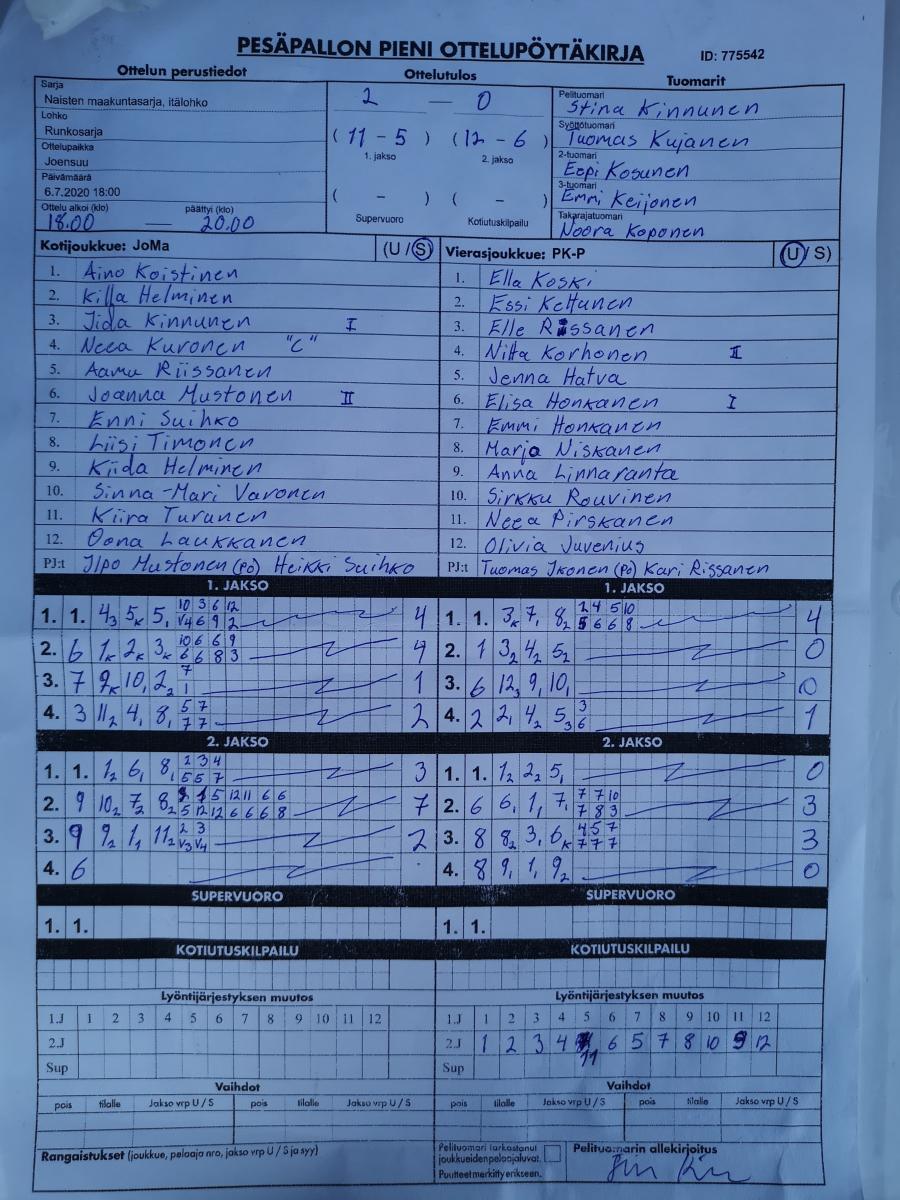 PESÄPALLON PIENI OTTELUPÖYTÄKIRJA ID: 775542
Ottelun perustiedot Ottelutulos Tuomarit
Sarja
Naisten maakuntasarja, itälohko
Lohko
Runkosarja
Ottelupaikka
Joensuu
Päivämäärä
6.7.2020 18:00
Ottelu alkoi (klo) päättyi (klo)
18.00 — 20.00
2 — 0
( 11 - 5 ) ( 12 - 6 )
1. jakso 2. jakso
( - ) ( - )
Supervuoro Kotiutuskilpailu
Pelituomari
Stina Kinnunen
Syöttötuomari
Tuomas Kujanen
2-tuomari
Eepi Kosunen
3-tuomari
Emmi Keijonen
Takarajatuomari
Noora Koponen
Kotijoukkue: JoMa (U / S)
1. Aino Koistinen
2. Killa Helminen
3. Iida Kinnunen I
4. Neea Kuronen "C"
5. Aamu Riissanen
6. Joanna Mustonen II
7. Enni Suihko
8. Liisi Timonen
9. Kiida Helminen
10. Sinna-Mari Varonen
11. Kiira Turunen
12. Oona Laukkanen
PJ:t Ilpo Mustonen (PÖ) Heikki Suihko
Vierasjoukkue: PK-P (U / S)
1. Ella Koski
2. Essi Keltanen
3. Elle Rissanen
4. Nitta Korhonen II
5. Jenna Hatva
6. Elisa Honkanen I
7. Emmi Honkanen
8. Marja Niskanen
9. Anna Linnaranta
10. Sirkku Rouvinen
11. Neea Pirskanen
12. Olivia Juvenius
PJ:t Tuomas Ikonen (PÖ) Kari Rissanen
1. JAKSO
10 3 6 12
1. 1. 4₃ 5ₖ 5₁ V4 6 9 2 4
10 6 6 9
2. 6 1ₖ 2ₖ 3ₖ 6 6 8 3 4
7
3. 7 9ₖ 10₁ 2₂ 1 1
5 7
4. 3 11₂ 4₁ 8₁ 7 7 2
1. JAKSO
2 4 5 10
1. 1. 3ₖ 7₁ 8₂ 5 6 6 8 4
2. 1 3₂ 4₂ 5₂ 0
3. 6 12₃ 9₁ 10₁ 0
3
4. 2 2₁ 4₂ 5₃ 6 1
2. JAKSO
2 3 4
1. 1. 1₂ 6₁ 8₁ 5 5 7 3
5 12 11 6 6
2. 9 10₂ 7₂ 8₂ 5 12 12 6 6 6 8 7
2 3
3. 9 9₂ 1₁ 11₂ V3 V4 2
4. 6
2. JAKSO
1. 1. 1₂ 2₂ 5₁ 0
7 7 10
2. 6 6₁ 1₁ 7₁ 7 8 3 3
4 5 7
3. 8 8₂ 3₁ 6ₖ 7 7 7 3
4. 8 9₁ 1₁ 9₂ 0
SUPERVUORO
1. 1.
SUPERVUORO
1. 1.
KOTIUTUSKILPAILU
KOTIUTUSKILPAILU
Lyöntijärjestyksen muutos
1.J 1 2 3 4 5 6 7 8 9 10 11 12
2.J
Sup
Lyöntijärjestyksen muutos
1.J 1 2 3 4 5 6 7 8 9 10 11 12
2.J 1 2 3 4 11 6 5 7 8 10 9 12
Sup
Vaihdot
pois tilalle Jakso vrp U / S pois tilalle Jakso vrp U / S
Vaihdot
pois tilalle Jakso vrp U / S pois tilalle Jakso vrp U / S
Rangaistukset (joukkue, pelaaja nro, jakso vrp U / S ja syy)
Pelituomari tarkastanut
joukkueiden peloajaluvat.
Puutteet merkitty erikseen.
Pelituomarin allekirjoitus